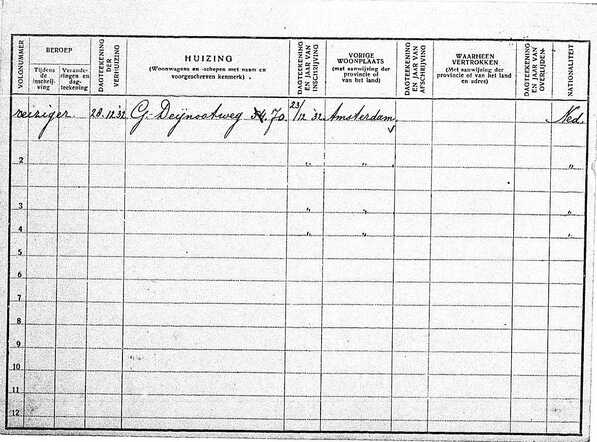 VOLGNUMMER
BEROEP
Tijdens de inschrijving
Veranderingen en dagteekening
DAGTEEKENING DER VERHUIZING
HUIZING
(Woonwagens en -schepen met naam en voorgeschreven kenmerk)
DAGTEEKENING EN JAAR VAN INSCHRIJVING
VORIGE WOONPLAATS
(met aanwijzing der provincie of van het land)
DAGTEEKENING EN JAAR VAN AFSCHRIJVING
WAARHEEN VERTROKKEN
(Met aanwijzing der provincie of van het land en adres)
DAGTEEKENING EN JAAR VAN OVERLIJDEN
NATIONALITEIT
reiziger. G. Deijnootweg 70. 23/12 '32. Amsterdam. Ned.
2 " " "
3 " " "
4 " " "
5
6
7
8
9
10
11
12